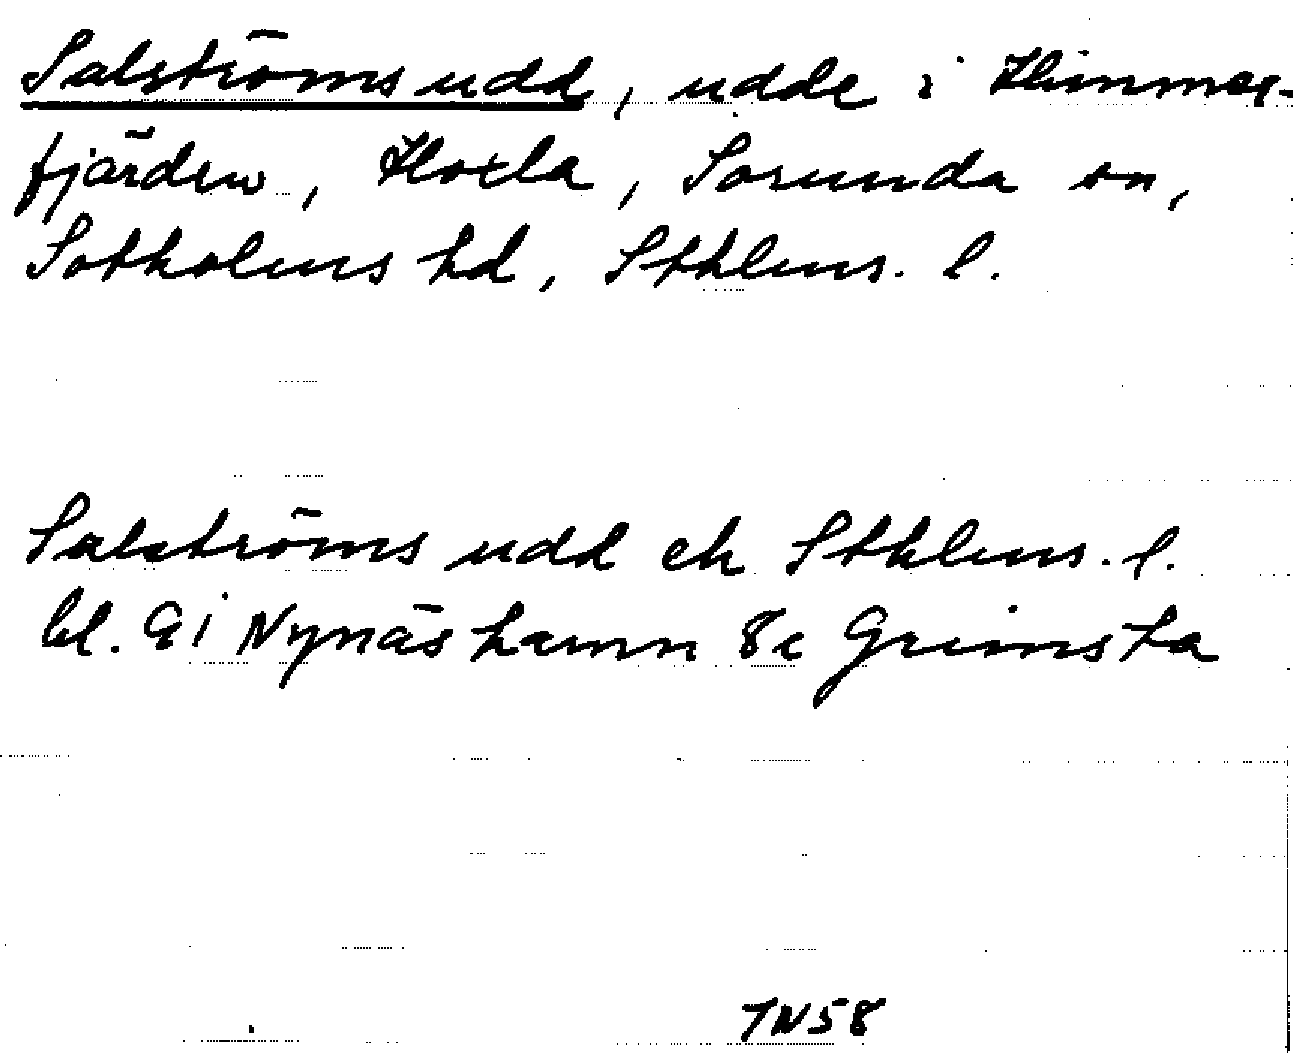 Salströms udd, udde i Himmer-
fjärden, Hoxla, Sorunda sn,
Sotholms hd, Sthlms. l.
Salströms udd ek Sthlms. l.
bl. 9i Nynäshamn 8c Grimsta
TN58